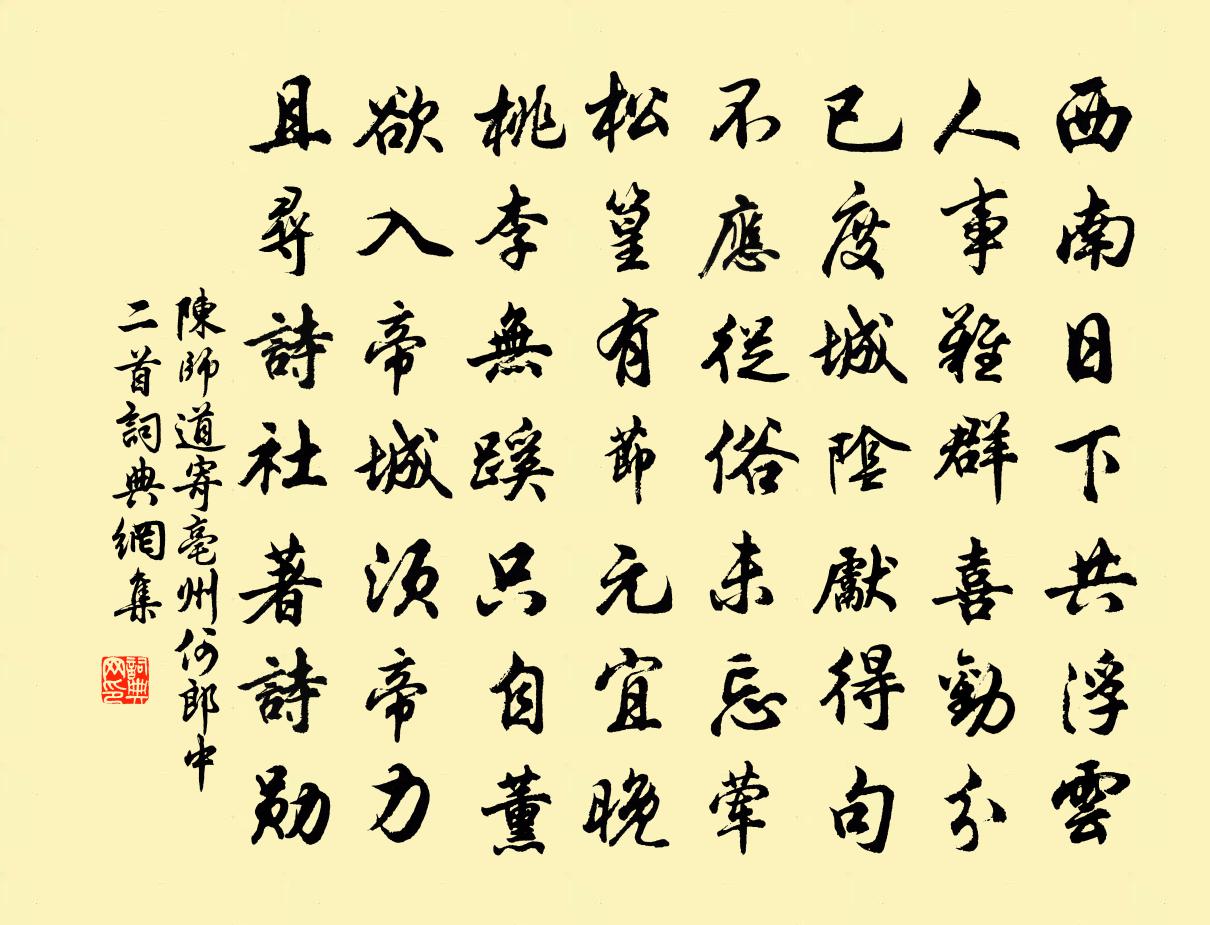 西南日下共浮雲
人事難群喜勸分
已度城陰獻得句
不應從俗未忘葷
松篁有節元宜晚
桃李無蹊只自薰
欲入帝城須帝力
且尋詩社著詩勛
陳師道寄亳州何郎中
二首詞典網集
詞典
网印